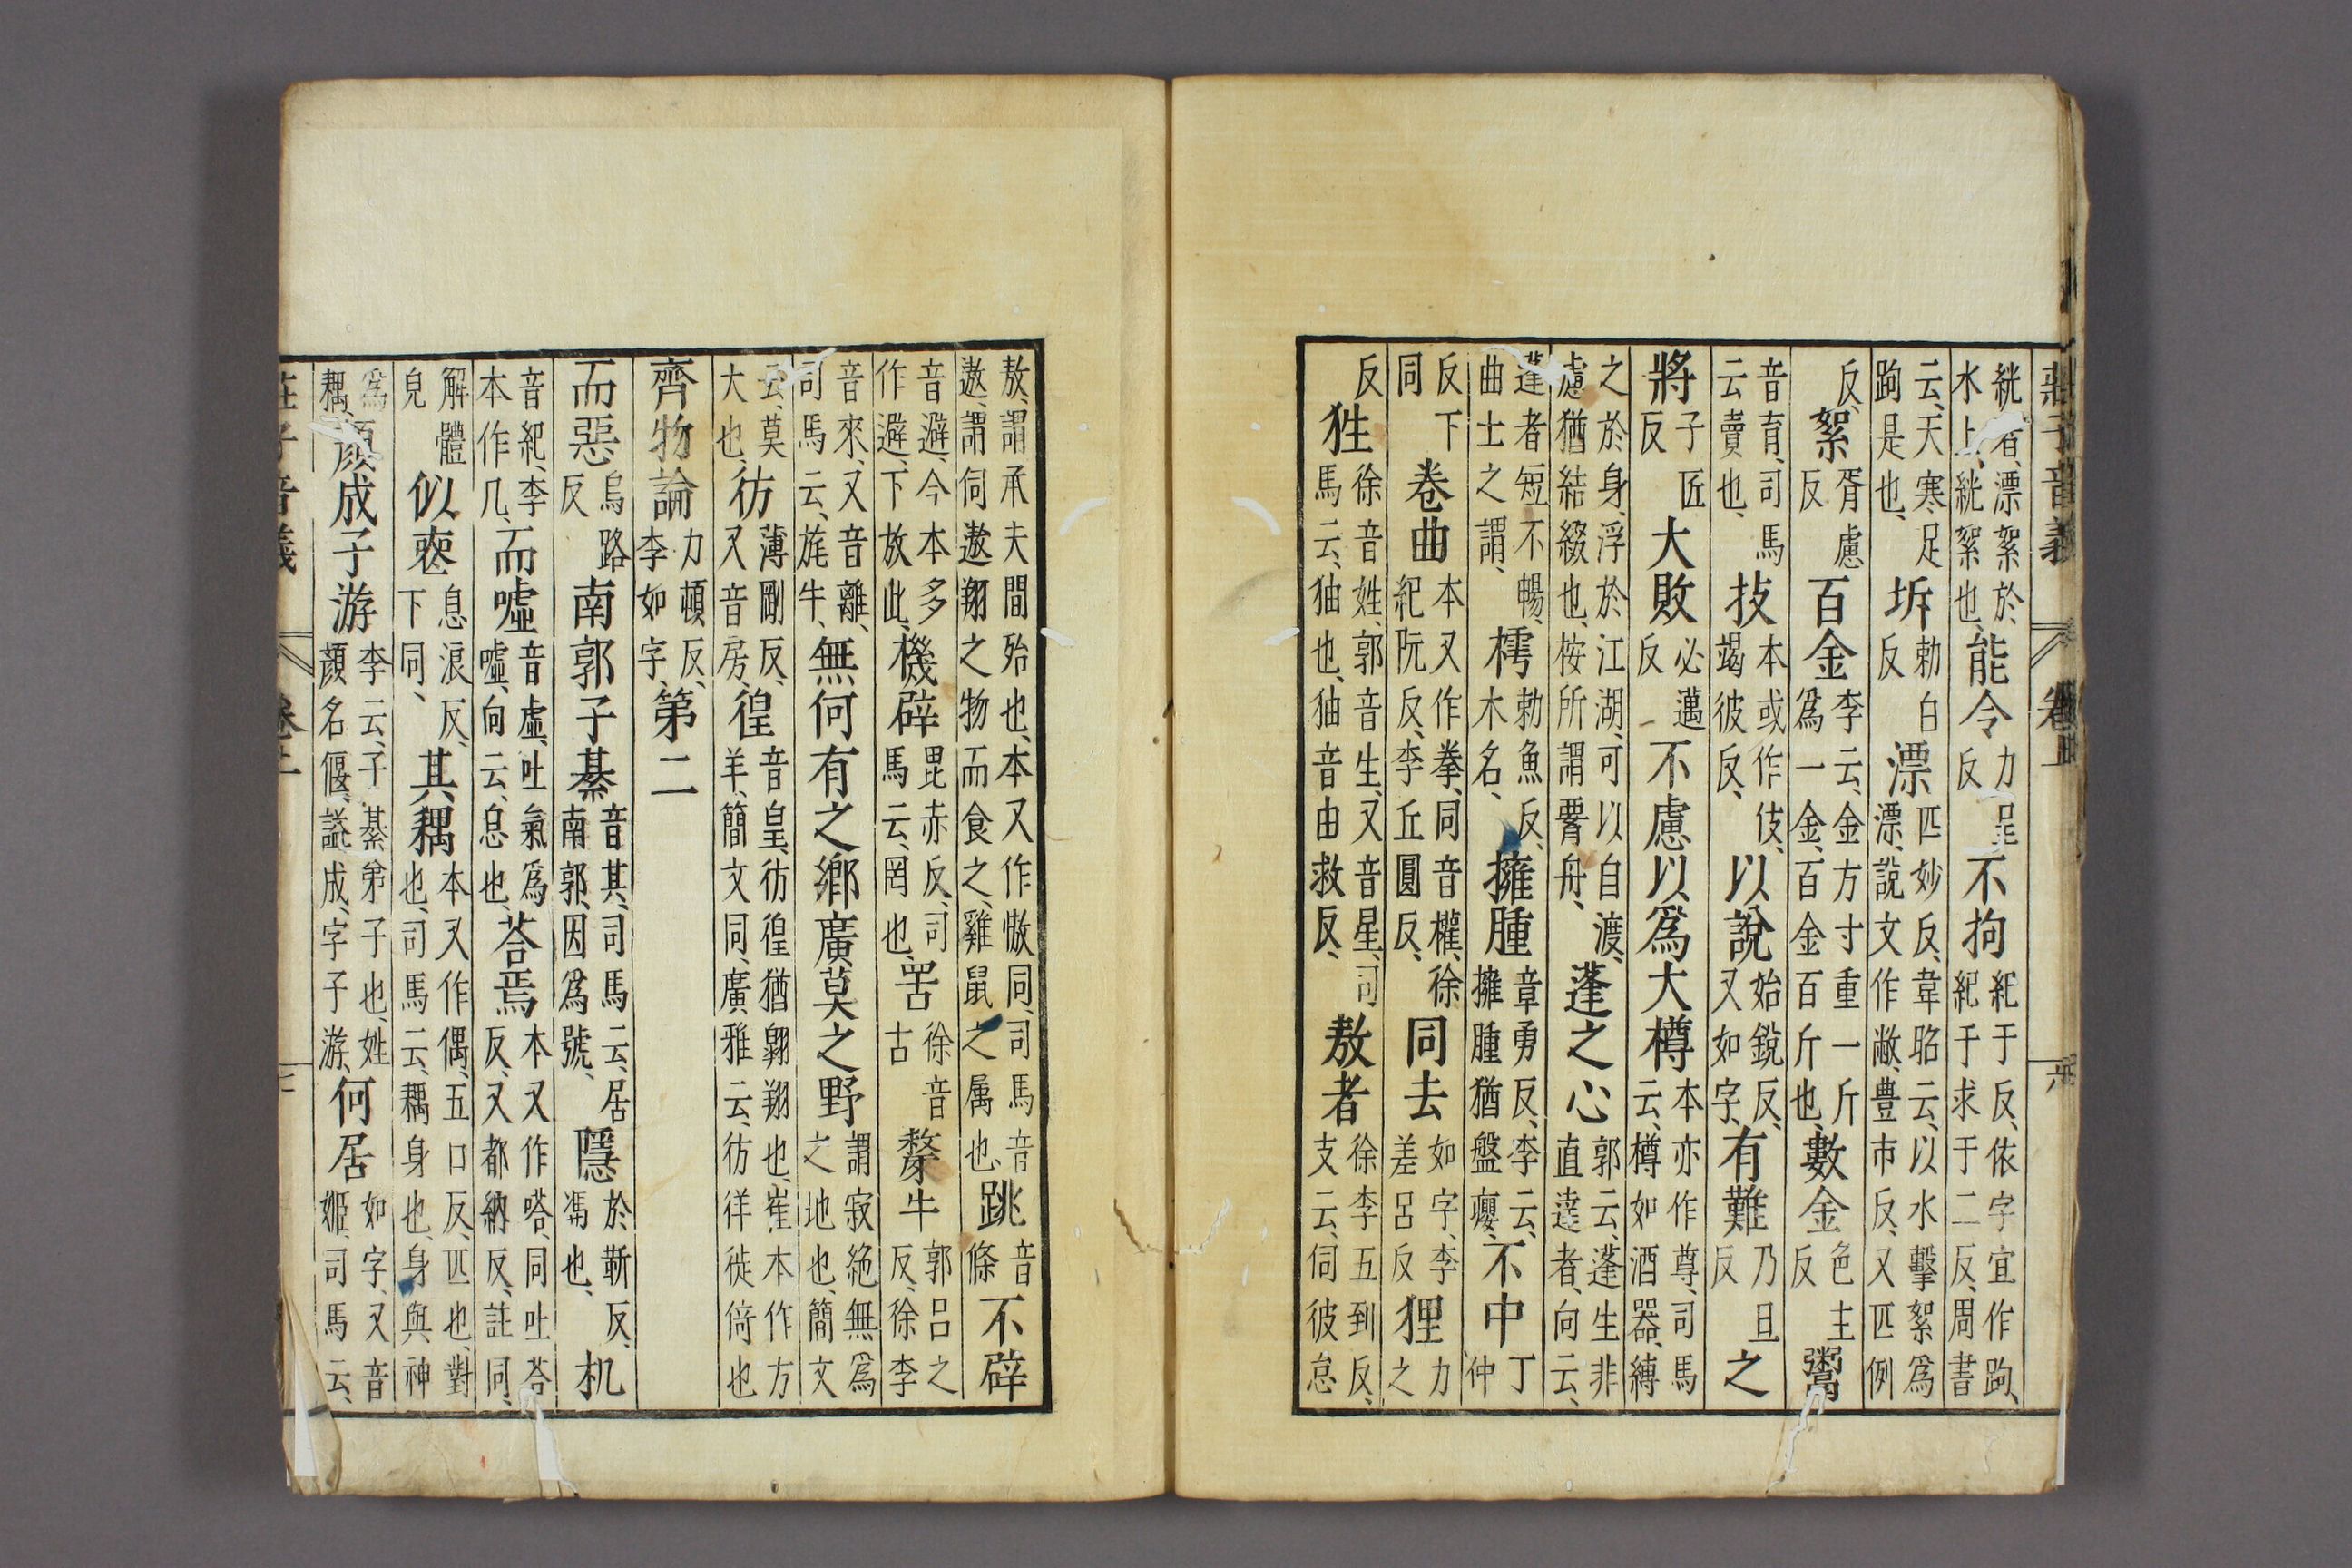 莊子音義
絖者漂絮於水上絖絮也能令力呈反不拘紀于反依字宜作跔紀于求于二反周書
云天寒足跔是也坼勅白反漂匹妙反韋昭云以水擊絮爲漂說文作敝豊市反又匹例
反絮胥慮反百金李云金方寸重一斤爲一金百金百斤也數金色主反鬻
音育司馬云賣也技本或作伎竭彼反以說始銳反又如字有難乃旦反之
將子匠反大敗必邁反不慮以爲大樽本亦作尊司馬云樽如酒器縛
之於身浮於江湖可以自渡慮猶結綴也桉所謂䙅舟蓬之心郭云蓬生非直達者向云
蓬者短不暢曲士之謂樗勅魚反木名擁腫章勇反李云擁腫猶盤癭不中丁仲
反下同卷曲本又作拳同音權徐紀阮反李丘圓反同去如字李差呂反狸力之
反狌徐音姓郭音生又音星司馬云狖也狖音由救反敖者徐李五到反支云伺彼怠
敖謂承夫間殆也本又作憿同司馬音遨謂伺遨翔之物而食之雞鼠之属也跳音條不辟
音避今本多作避下放此機辟毘赤反司馬云罔也罟徐音古斄牛郭呂之反徐李
音來又音離司馬云旄牛無何有之鄉廣莫之野謂寂絶無爲之地也簡文
云莫大也彷薄剛反又音房徨音皇彷徨猶翱翔也崔本作方羊簡文同廣雅云彷徉徙倚也
齊物論力頓反李如字第二
而惡烏路反南郭子綦音其司馬云居南郭因爲號隱於靳反馮也机
音紀李本作几而噓音虛吐氣爲噓向云息也荅焉本又作嗒同吐荅反又都納反註同
解體皃似喪息浪反下同其耦本又作偶五口反匹也對也司馬云耦身也身與神
爲耦顏成子游李云子綦弟子也姓顏名偃謚成字子游何居如字又音姬司馬云